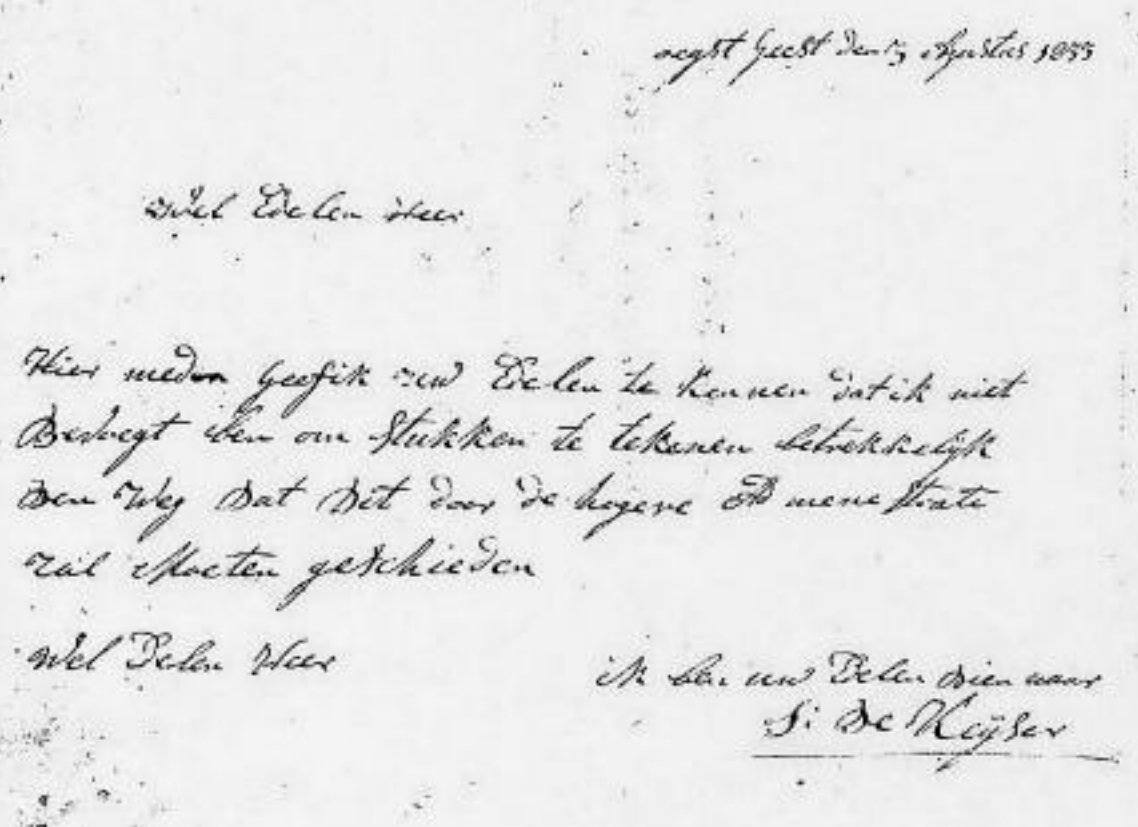 oegst Geest den 5 Agustus 1855
Wel Edelen Heer
Hier meden Geef ik uw Edelen te kennen dat ik niet
Bevoegt ben om Stukken te tekenen betrekkelijk
den Weg dat dit door de hogere Ad menestrate
zal Moeten geschieden
Wel Edelen Heer
ik ben uw Edelen dien naar
De Keÿser